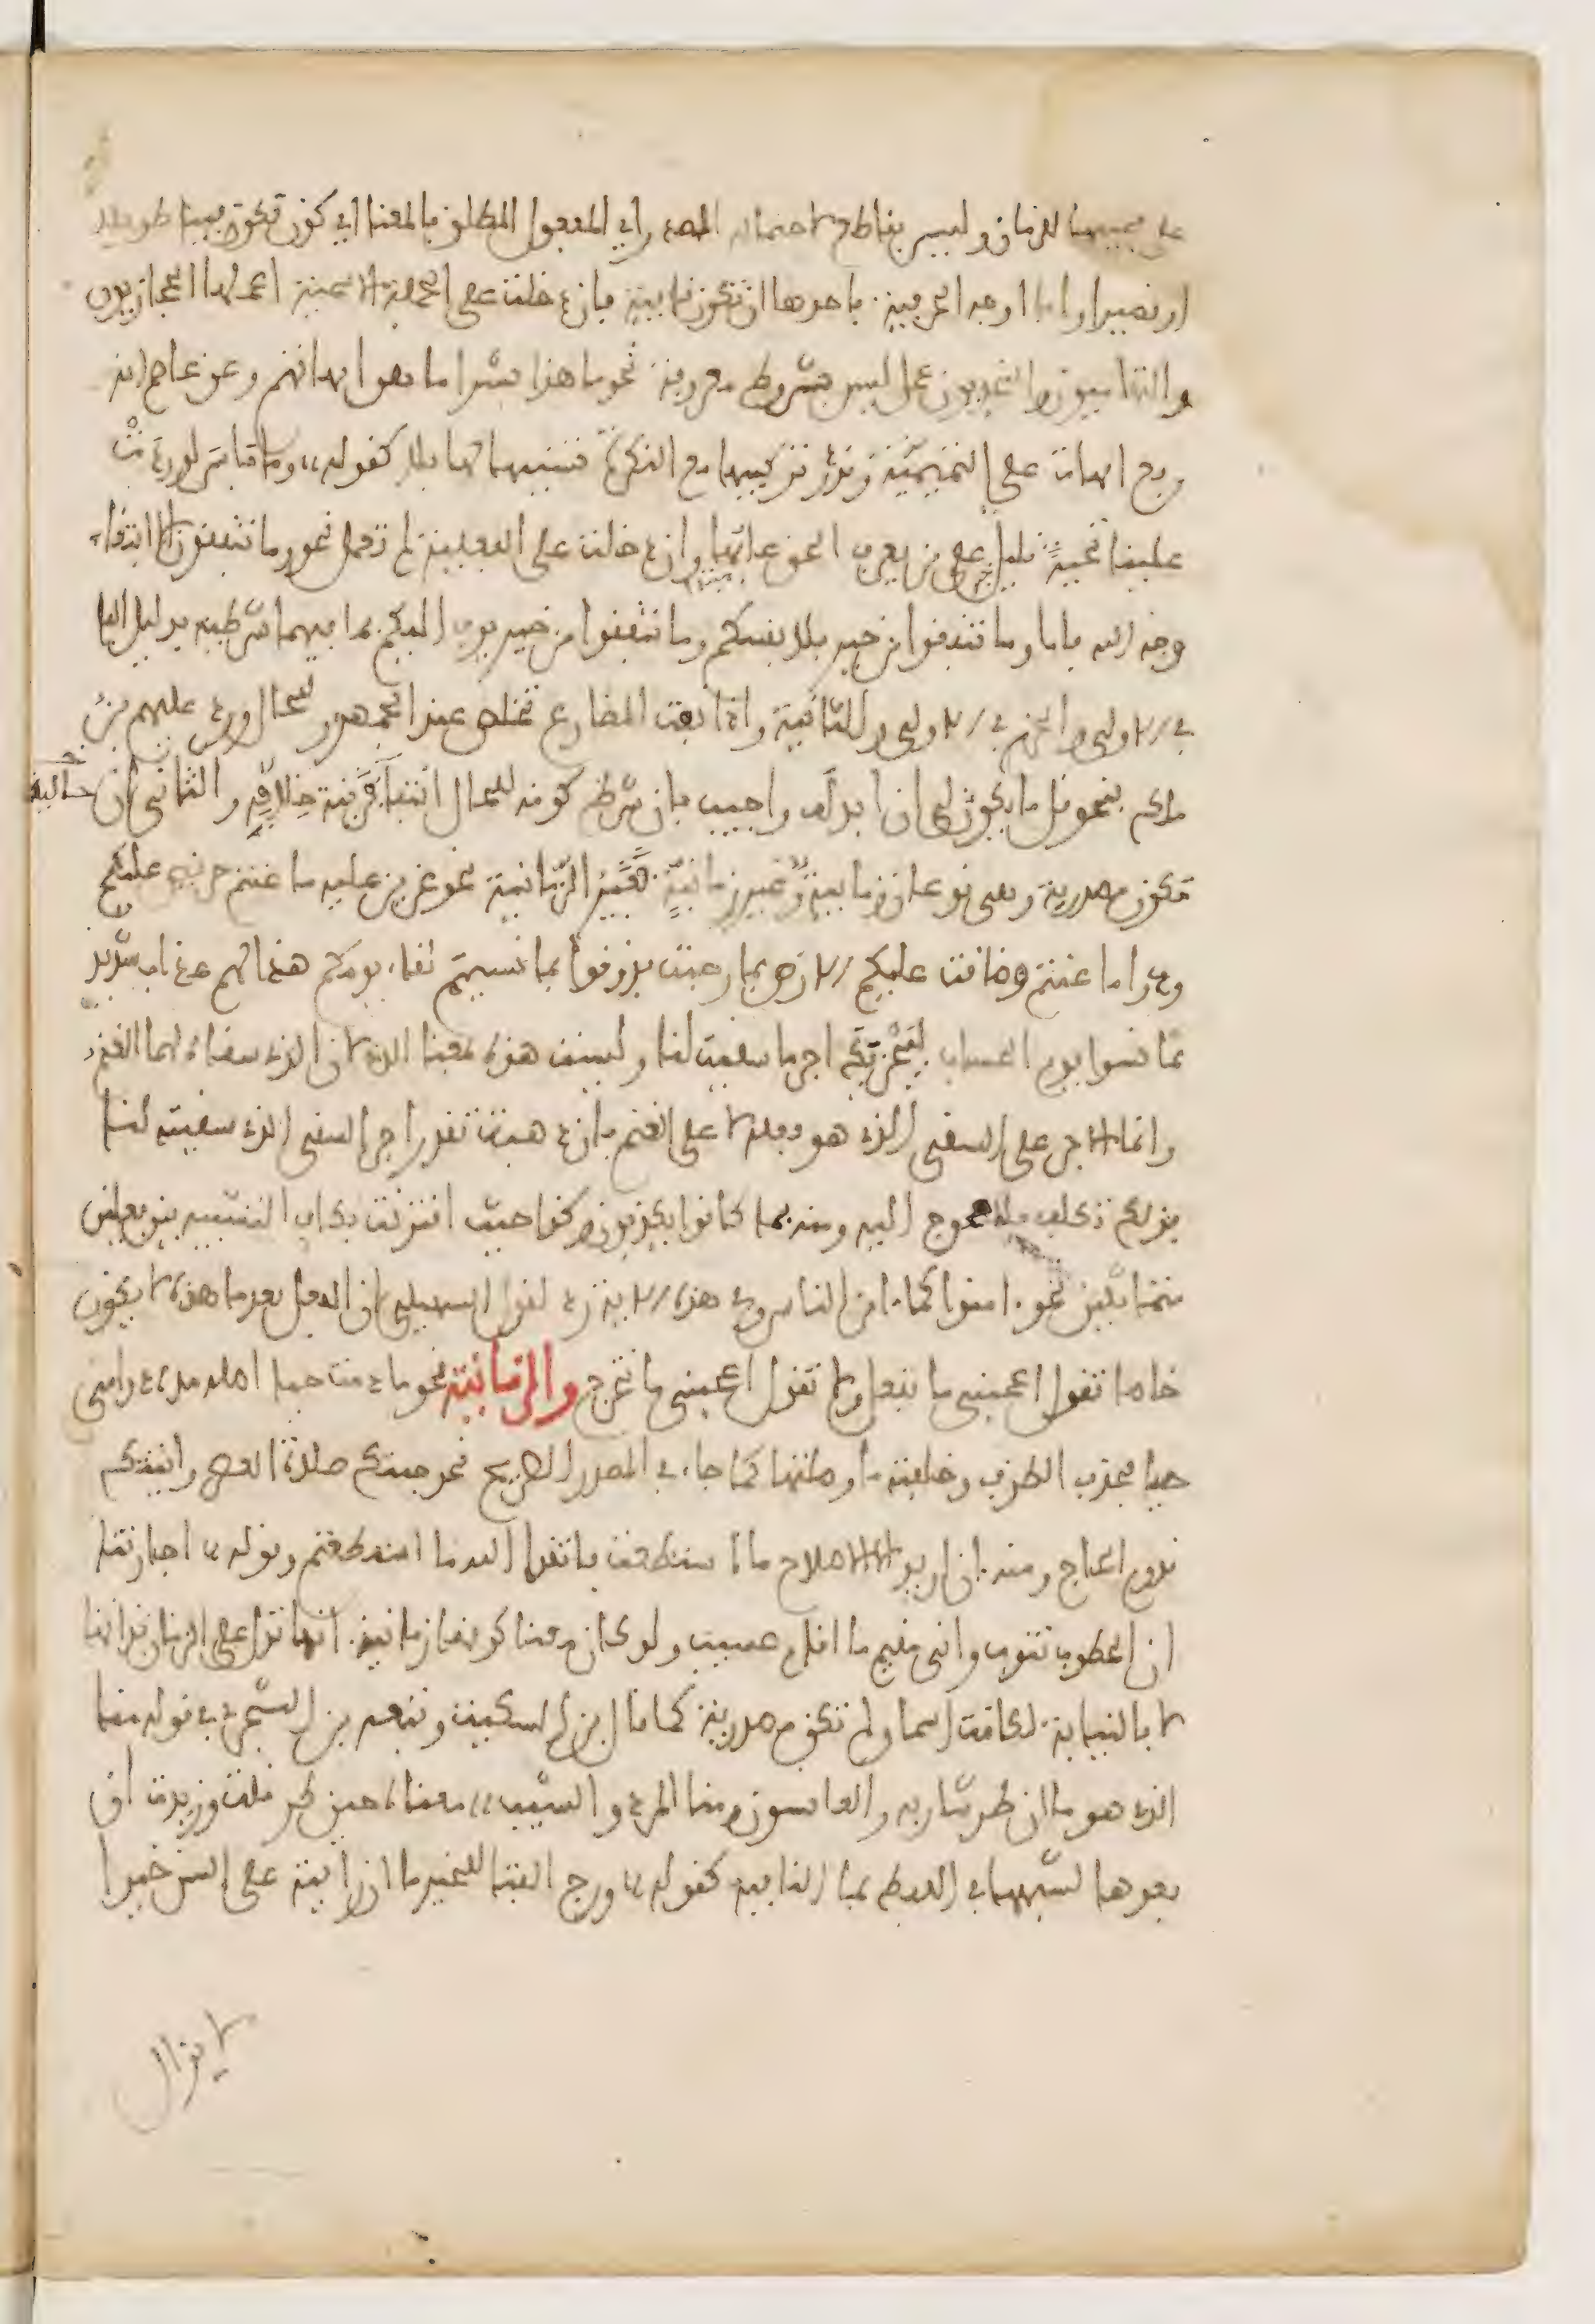 على مجيئها للزمان وليس بقاطع لاحتماله المصدر اي المفعول المطلق فالمعنا اي كون تكون فينا طويلا
او قصيرا واما اوجه الحرفية فاحدها ان تكون نافية فان دخلت على الجملة الاسمية اعملها الحجازيون
والتهاميون والنجديون عمل ليس بشروط معروفة نحو ما هذا بشرا ما هن امهاتهم وعن عاصم انه
رفع امهات على التميمية وندر تركيبها مع النكرة تشبيها لها بلا كقوله وما باس لو ردت
علينا تحية قليل على من يعرف الحق عابها وان دخلت على الفعلية لم تعمل نحو وما تنفقون الا ابتغاء
وجه الله فاما وما تنفقوا من خير فلانفسكم وما تنفقوا من خير يوف اليكم فما فيهما شرطية بدليل الفا
في الاولى والجزم في الاولى وللثانية واذا نفت المضارع تخلص عند الجمهور للحال ورد عليهم بن
مالك بنحو قل ما يكون لي ان ابدله واجيب بان شرط كونه للحال انتفا قرينة خلافه والثاني ان
تكون مصدرية وهي نوعان زمانية وغير زمانية فغير الزمانية نحو عزيز عليه ما عنتم حريص عليكم
ودوا ما عنتم وضاقت عليكم الارض بما رحبت فذوقوا بما نسيتم لقاء يومكم هذا لهم عذاب شديد
بما نسوا يوم الحساب ليجزيك اجر ما سقيت لنا وليست هذه بمعنا الذي لان الذي سقاه لهما الغنم
وانما الاجر على السقي الذي هو فعله لا على الغنم فان ذهبت تقدر اجر السقي الذي سقيته لنا
فذلك تكلف لا محوج اليه ومنه بما كانوا يكذبون وكذا حيث اقترنت بكاف التشبيه بين فعلين
متماثلين نحو امنوا كما امن الناس وفي هذه الاية رد لقول السهيلي ان الفعل بعد ما هذه لا يكون
خاصا تقول اعجبني ما تفعل ولا تقول اعجبني ما تخرج والزمانية نحو ما دمت حيا اصله مدة دوامي
حيا فحذف الظرف وخلفته ما وصلتها كما جاء في المصدر الصريح نحو جيتك صلاة العصر واتيتك
قدوم الحاج ومنه ان اريد الا الاصلاح ما استطعت فاتقوا الله ما استطعتم وقوله اجارتنا
ان الخطوب تنوب واني مقيم ما اقام عسيب ولو كان معنا كونها زمانية انها تدل على الزمان بذاتها
لا بالنيابة لكانت اسما ولم تكن مصدرية كما قال بن السكيت وتبعه بن الشجري في قوله منا
الذي هو ما ان طر شاربه والعانسون ومنا المرد والشيب معناه حين طر قلت وزيدت ان
بعدها لشبهها في اللفظ بما النافية كقوله ورج الفتا للخير ما ان رايته على السن خيرا
لا يزال